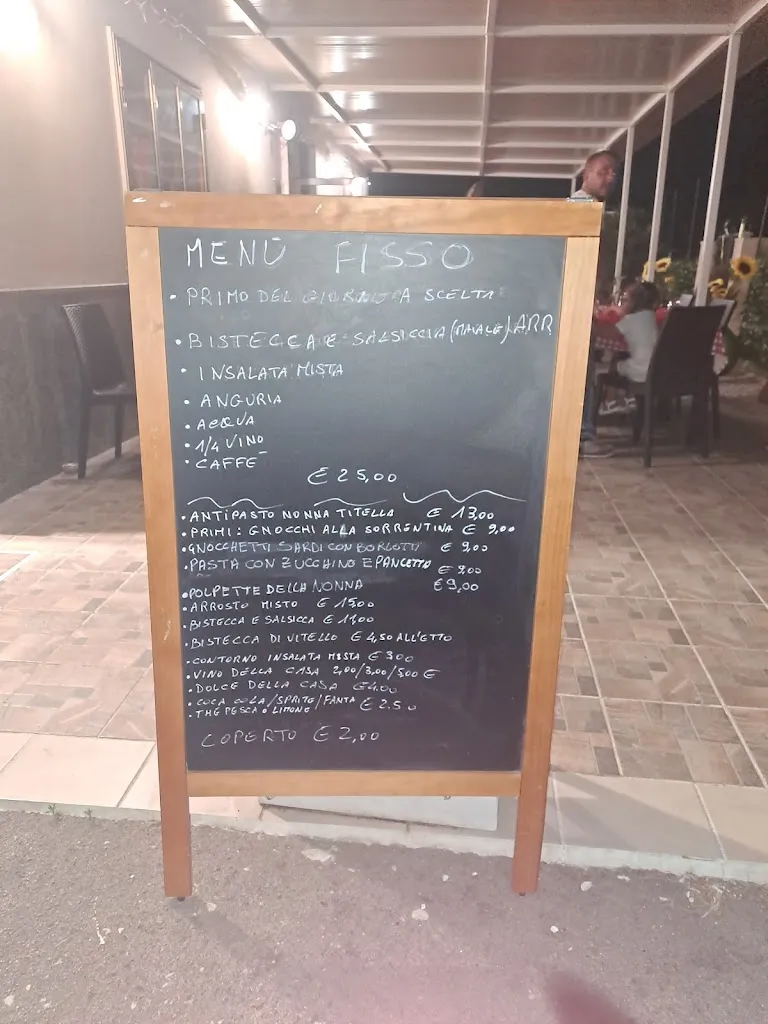 MENÙ FISSO
• PRIMO DEL GIORNO A SCELTA
• BISTECCA E SALSICCIA (MAIALE) ARR
• INSALATA MISTA
• ANGURIA
• ACQUA
• 1/4 VINO
• CAFFE
€ 25,00
• ANTIPASTO NONNA TITELLA € 13,00
• PRIMI: GNOCCHI ALLA SORRENTINA € 9,00
• GNOCCHETTI SARDI CON BORLOTTI € 9,00
• PASTA CON ZUCCHINO E PANCETTA € 9,00
• POLPETTE DELLA NONNA € 9,00
• ARROSTO MISTO € 15,00
• BISTECCA E SALSICCA €
• BISTECCA DI VITELLO € 4,50 ALL'ETTO
• CONTORNO INSALATA MISTA € 3,00
• VINO DELLA CASA 2,00/3,00/5,00 €
• DOLCE DELLA CASA € 4,00
• COCA COLA/SPRITE/FANTA € 2.50
• THÉ PESCA O LIMONE
COPERTO € 2,00